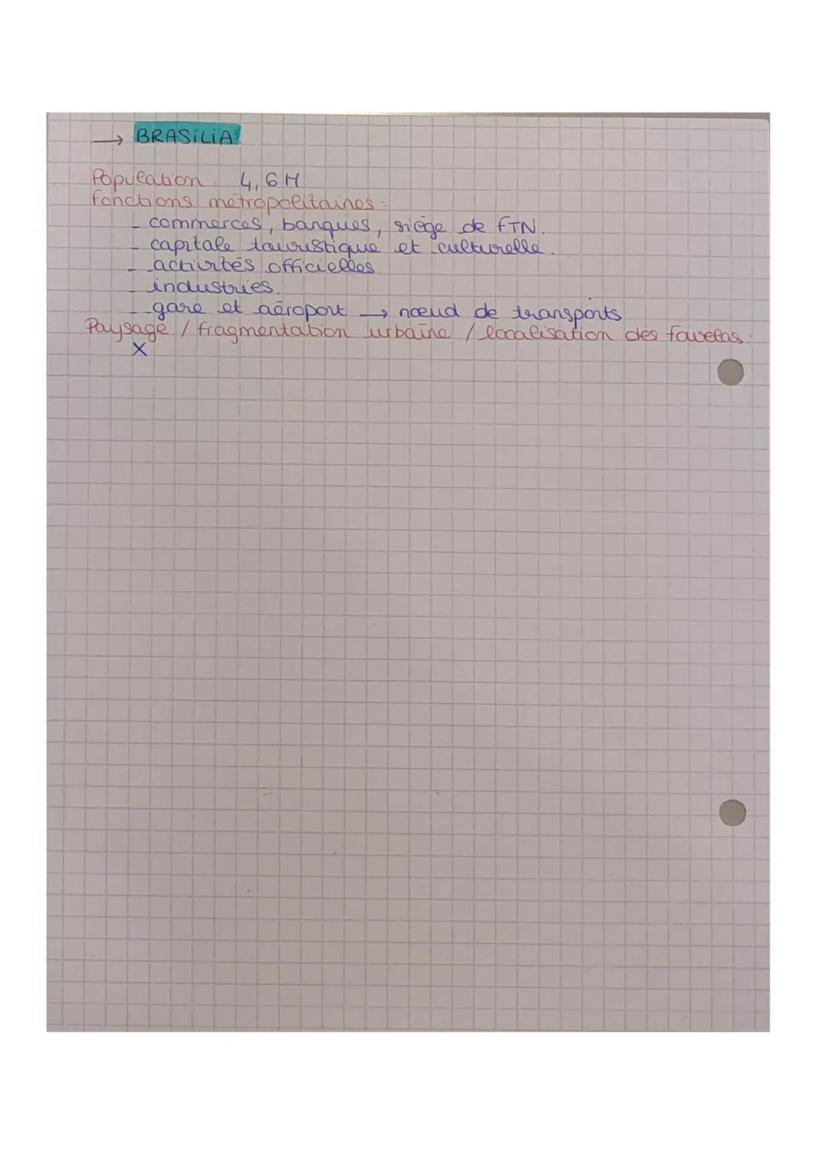 → BRASILIA
Population : 4,6 M
fonctions métropolitaines :
- commerces, banques, siège de FTN.
- capitale touristique et culturelle.
- activités officielles.
- industries.
- gare et aéroport → nœud de transports
Paysage / fragmentation urbaine / localisation des favelas :
X